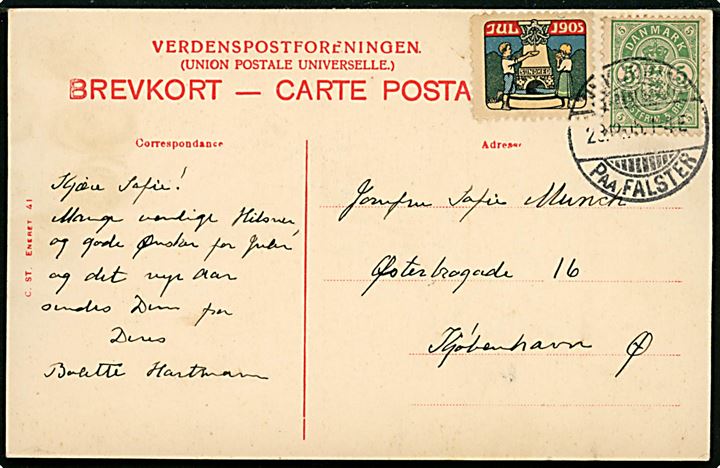 VERDENSPOSTFORENINGEN.
(UNION POSTALE UNIVERSELLE.)
BREVKORT — CARTE POSTA
JUL 1905
SUNDHED
DANMARK
5 5
5 5
POSTFRIM
PAA FALSTER
Correspondance
Adresse
Kjære Sofie!
Mange venlige Hilsner
og gode Ønsker for Julen
og det nye Aar
sendes Dem fra
Deres
Bolette Hartmann
Jomfru Sofie Munch
Østerbrogade 16
Kjøbenhavn Ø
C. ST. ENERET 41